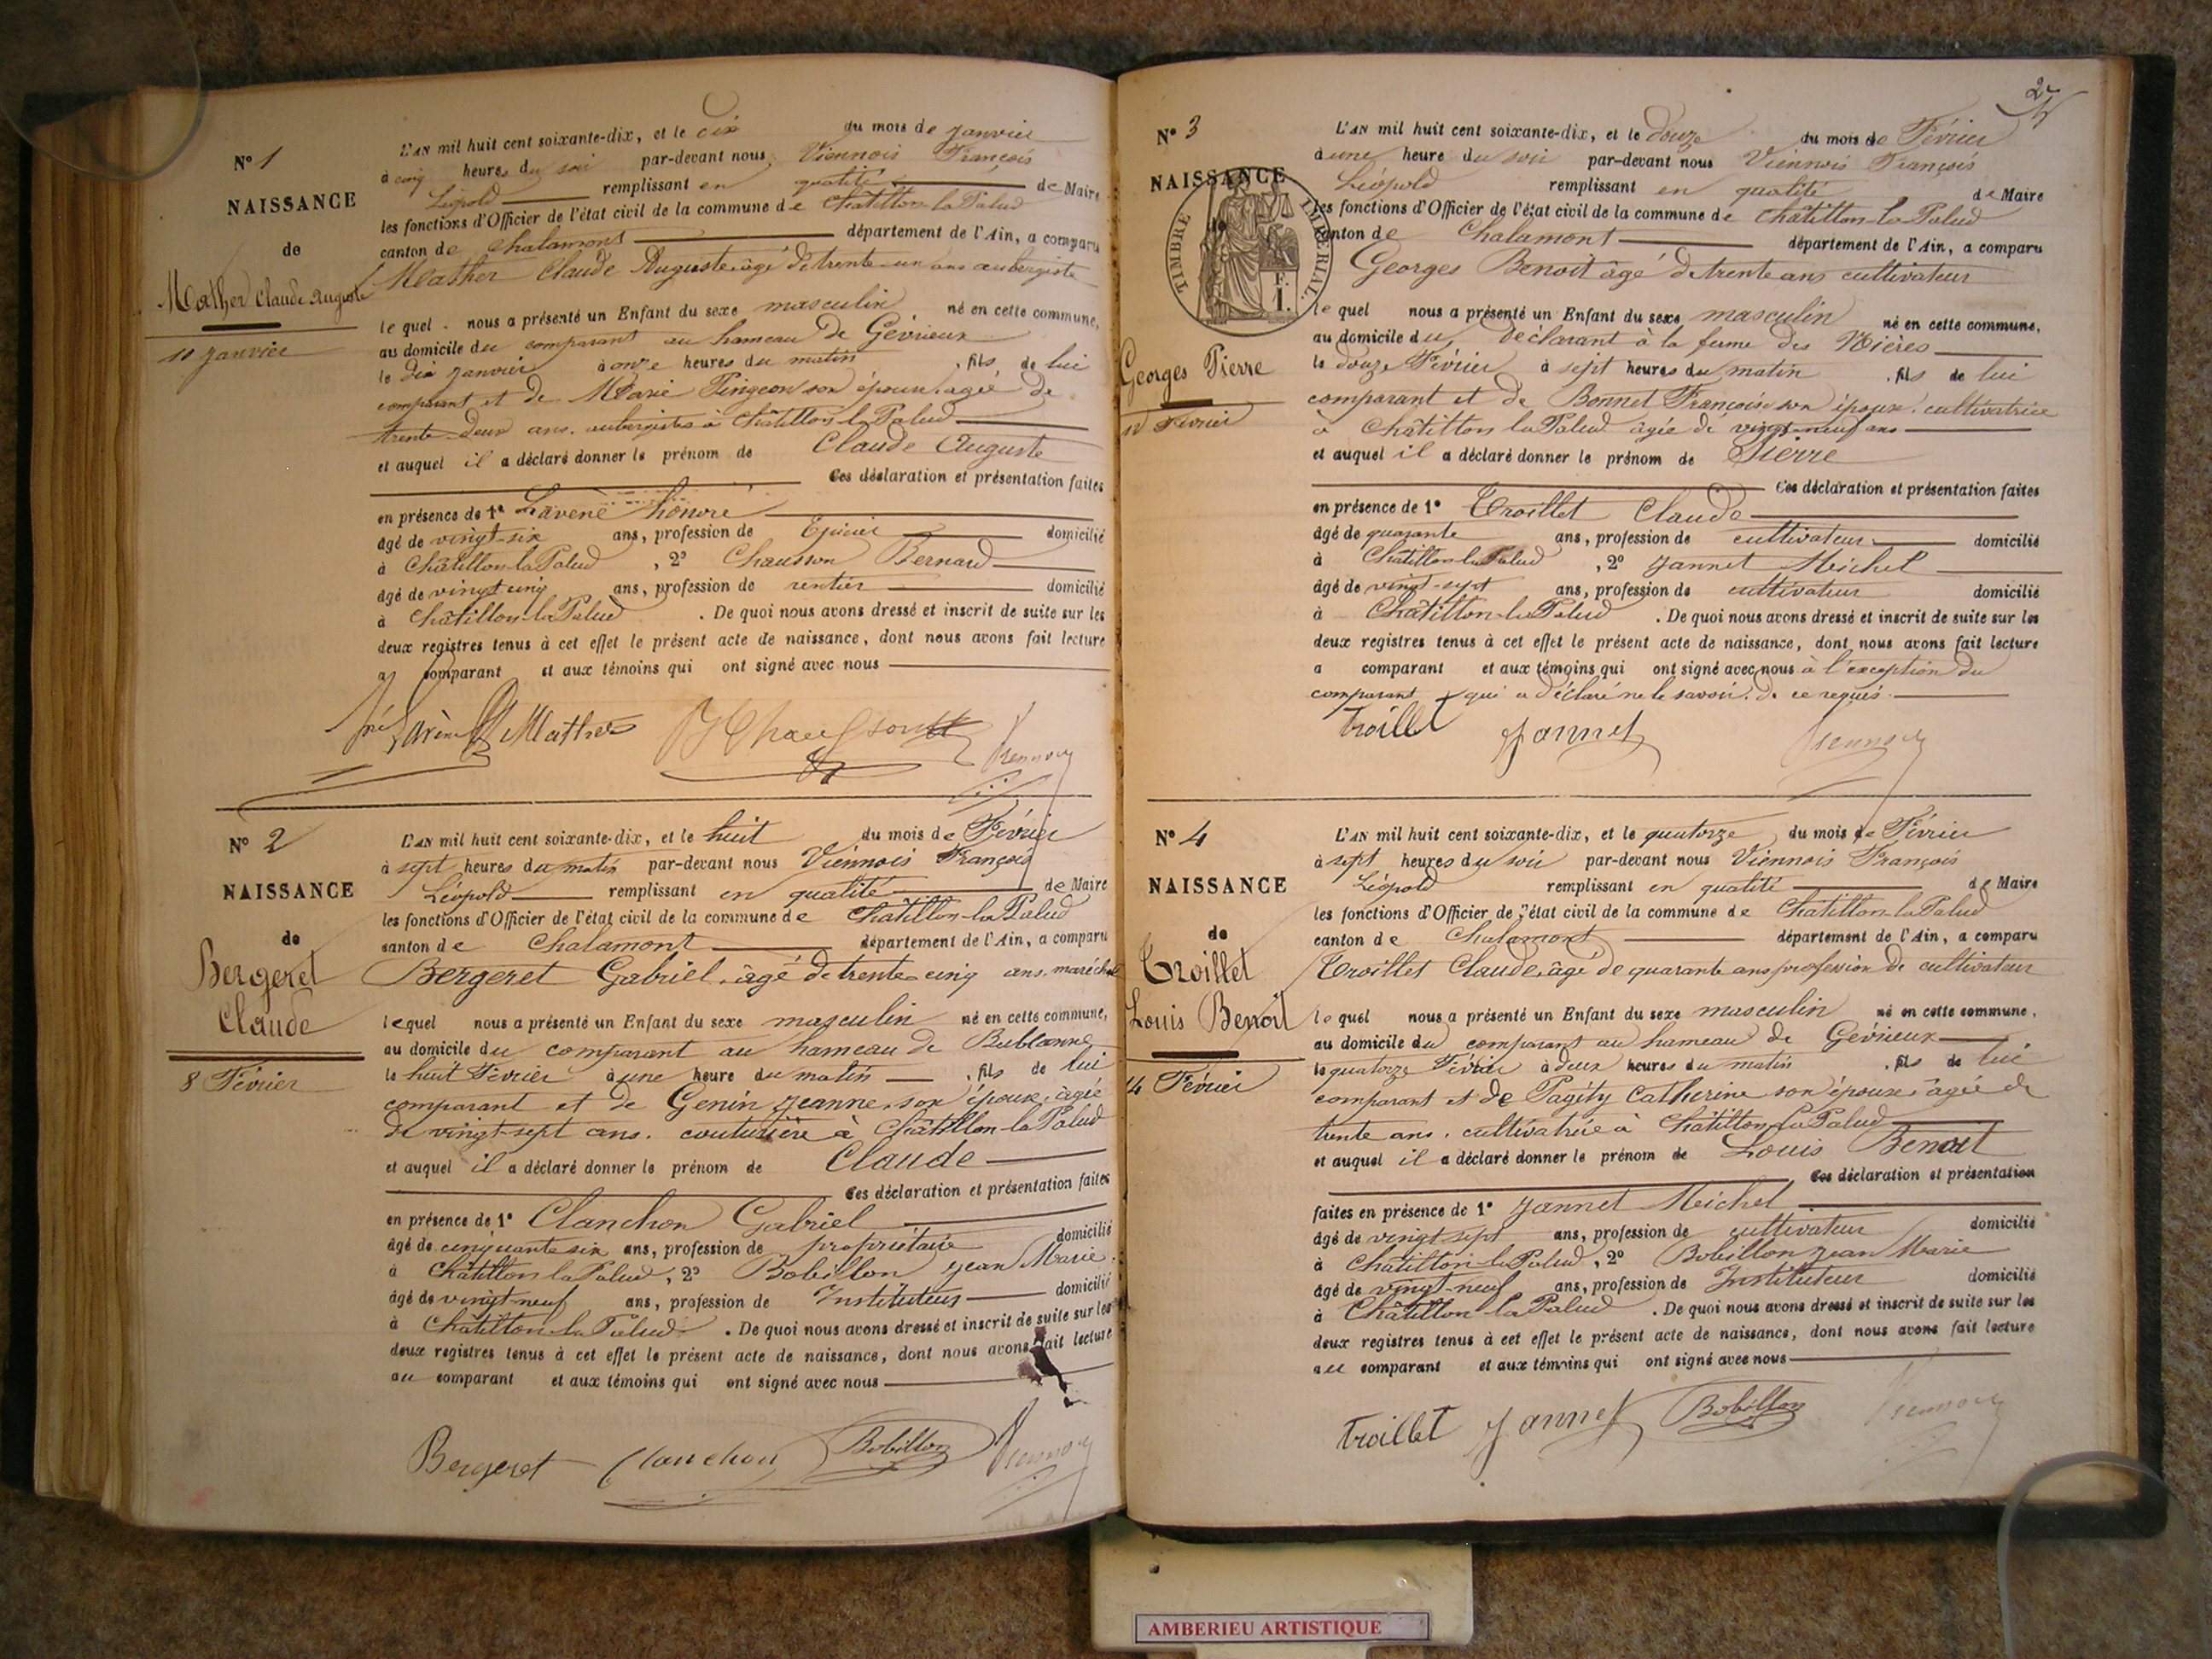 N° 1
NAISSANCE
de
Mather Claude Auguste
10 Janvier
L'AN mil huit cent soixante-dix, et le dix du mois de Janvier
à cinq heures du soir par-devant nous Viennois François
Léopold remplissant en qualité de Maire
les fonctions d'Officier de l'état civil de la commune de Châtillon la Palud
canton de Chalamont département de l'Ain, a comparu
Mather Claude Auguste âgé de trente-un ans aubergiste
lequel nous a présenté un Enfant du sexe masculin né en cette commune,
au domicile du comparant au hameau de Gévrieux
le dix Janvier à onze heures du matin, fils de lui
comparant et de Marie Pingeon son épouse âgée de
trente-deux ans. aubergistes à Châtillon la Palud
et auquel il a déclaré donner le prénom de Claude Auguste
Ces déclaration et présentation faites
en présence de 1° Lavene honore
âgé de vingt-six ans, profession de Epicier domicilié
à Châtillon-la-Palud, 2° Chausson Bernard
âgé de vingt cinq ans, profession de rentier domicilié
à Châtillon la Palud. De quoi nous avons dressé et inscrit de suite sur les
deux registres tenus à cet effet le présent acte de naissance, dont nous avons fait lecture
a comparant et aux témoins qui ont signé avec nous
Mather
N° 2
NAISSANCE
de
Bergeret
Claude
8 Février
L'AN mil huit cent soixante-dix, et le huit du mois de Février
à sept heures du matin par-devant nous Viennois François
Léopold remplissant en qualité de Maire
les fonctions d'Officier de l'état civil de la commune de Châtillon-la Palud
canton de Chalamont département de l'Ain, a comparu
Bergeret Gabriel, âgé de trente-cinq ans, maréchal
lequel nous a présenté un Enfant du sexe masculin né en cette commune,
au domicile du comparant au hameau de Bublanne
le huit Février à une heure du matin, fils de lui
comparant et de Genin Jeanne, son épouse, âgée
de vingt-sept ans. couturière à Châtillon-la Palud
et auquel il a déclaré donner le prénom de Claude
Ces déclaration et présentation faites
en présence de 1° Clanchon Gabriel
âgé de cinquante six ans, profession de propriétaire domicilié
à Châtillon la Palud, 2° Bobillon Jean Marie.
âgé de vingt-neuf ans, profession de Instituteur domicilié
à Châtillon-la Palud. De quoi nous avons dressé et inscrit de suite sur les
deux registres tenus à cet effet le présent acte de naissance, dont nous avons fait lecture
au comparant et aux témoins qui ont signé avec nous
Bergeret Clanchon Bobillon Viennois
2
N° 3
NAISSANCE
TIMBRE IMPERIAL
F.
1.
Georges Pierre
12 Février
L'AN mil huit cent soixante-dix, et le douze du mois de Février
à une heure du soir par-devant nous Viennois François
Léopold remplissant en qualité de Maire
les fonctions d'Officier de l'état civil de la commune de Châtillon-la Palud
canton de Chalamont département de l'Ain, a comparu
Georges Benoit âgé de trente ans cultivateur
lequel nous a présenté un Enfant du sexe masculin né en cette commune,
au domicile du déclarant à la ferme des
le douze Février à sept heures du matin, fils de lui
comparant et de Bonnet Françoise son épouse. cultivatrice
à Châtillon la Palud âgée de vingt-neuf ans
et auquel il a déclaré donner le prénom de Pierre
Ces déclaration et présentation faites
en présence de 1° Troillet Claude
âgé de quarante ans, profession de cultivateur domicilié
à Châtillon la Palud, 2° Jannet Michel
âgé de vingt-sept ans, profession de cultivateur domicilié
à Châtillon-la Palud. De quoi nous avons dressé et inscrit de suite sur les
deux registres tenus à cet effet le présent acte de naissance, dont nous avons fait lecture
a comparant et aux témoins qui ont signé avec nous à l'exception du
comparant qui a déclaré ne le savoir. de ce requis.
Troillet Jannet Viennois
N° 4
NAISSANCE
de
Troillet
Louis Benoit
14 Février
L'AN mil huit cent soixante-dix, et le quatorze du mois de Février
à sept heures du soir par-devant nous Viennois François
Léopold remplissant en qualité de Maire
les fonctions d'Officier de l'état civil de la commune de Châtillon-la Palud
canton de Chalamont département de l'Ain, a comparu
Troillet Claude, âgé de quarante ans profession de cultivateur
lequel nous a présenté un Enfant du sexe masculin né en cette commune,
au domicile du comparant au hameau de Gévrieux
le quatorze Février à deux heures du matin, fils de lui
comparant et de Pagéty Catherine son épouse, âgée de
trente ans. cultivatrice à Châtillon la Palud
et auquel il a déclaré donner le prénom de Louis Benoit
Ces déclaration et présentation
faites en présence de 1° Jannet Michel
âgé de vingt-sept ans, profession de cultivateur domicilié
à Châtillon-la Palud, 2° Bobillon Jean Marie
âgé de vingt-neuf ans, profession de Instituteur domicilié
à Châtillon-la Palud. De quoi nous avons dressé et inscrit de suite sur les
deux registres tenus à cet effet le présent acte de naissance, dont nous avons fait lecture
au comparant et aux témoins qui ont signé avec nous
Troillet Jannet Bobillon Viennois
AMBERIEU ARTISTIQUE